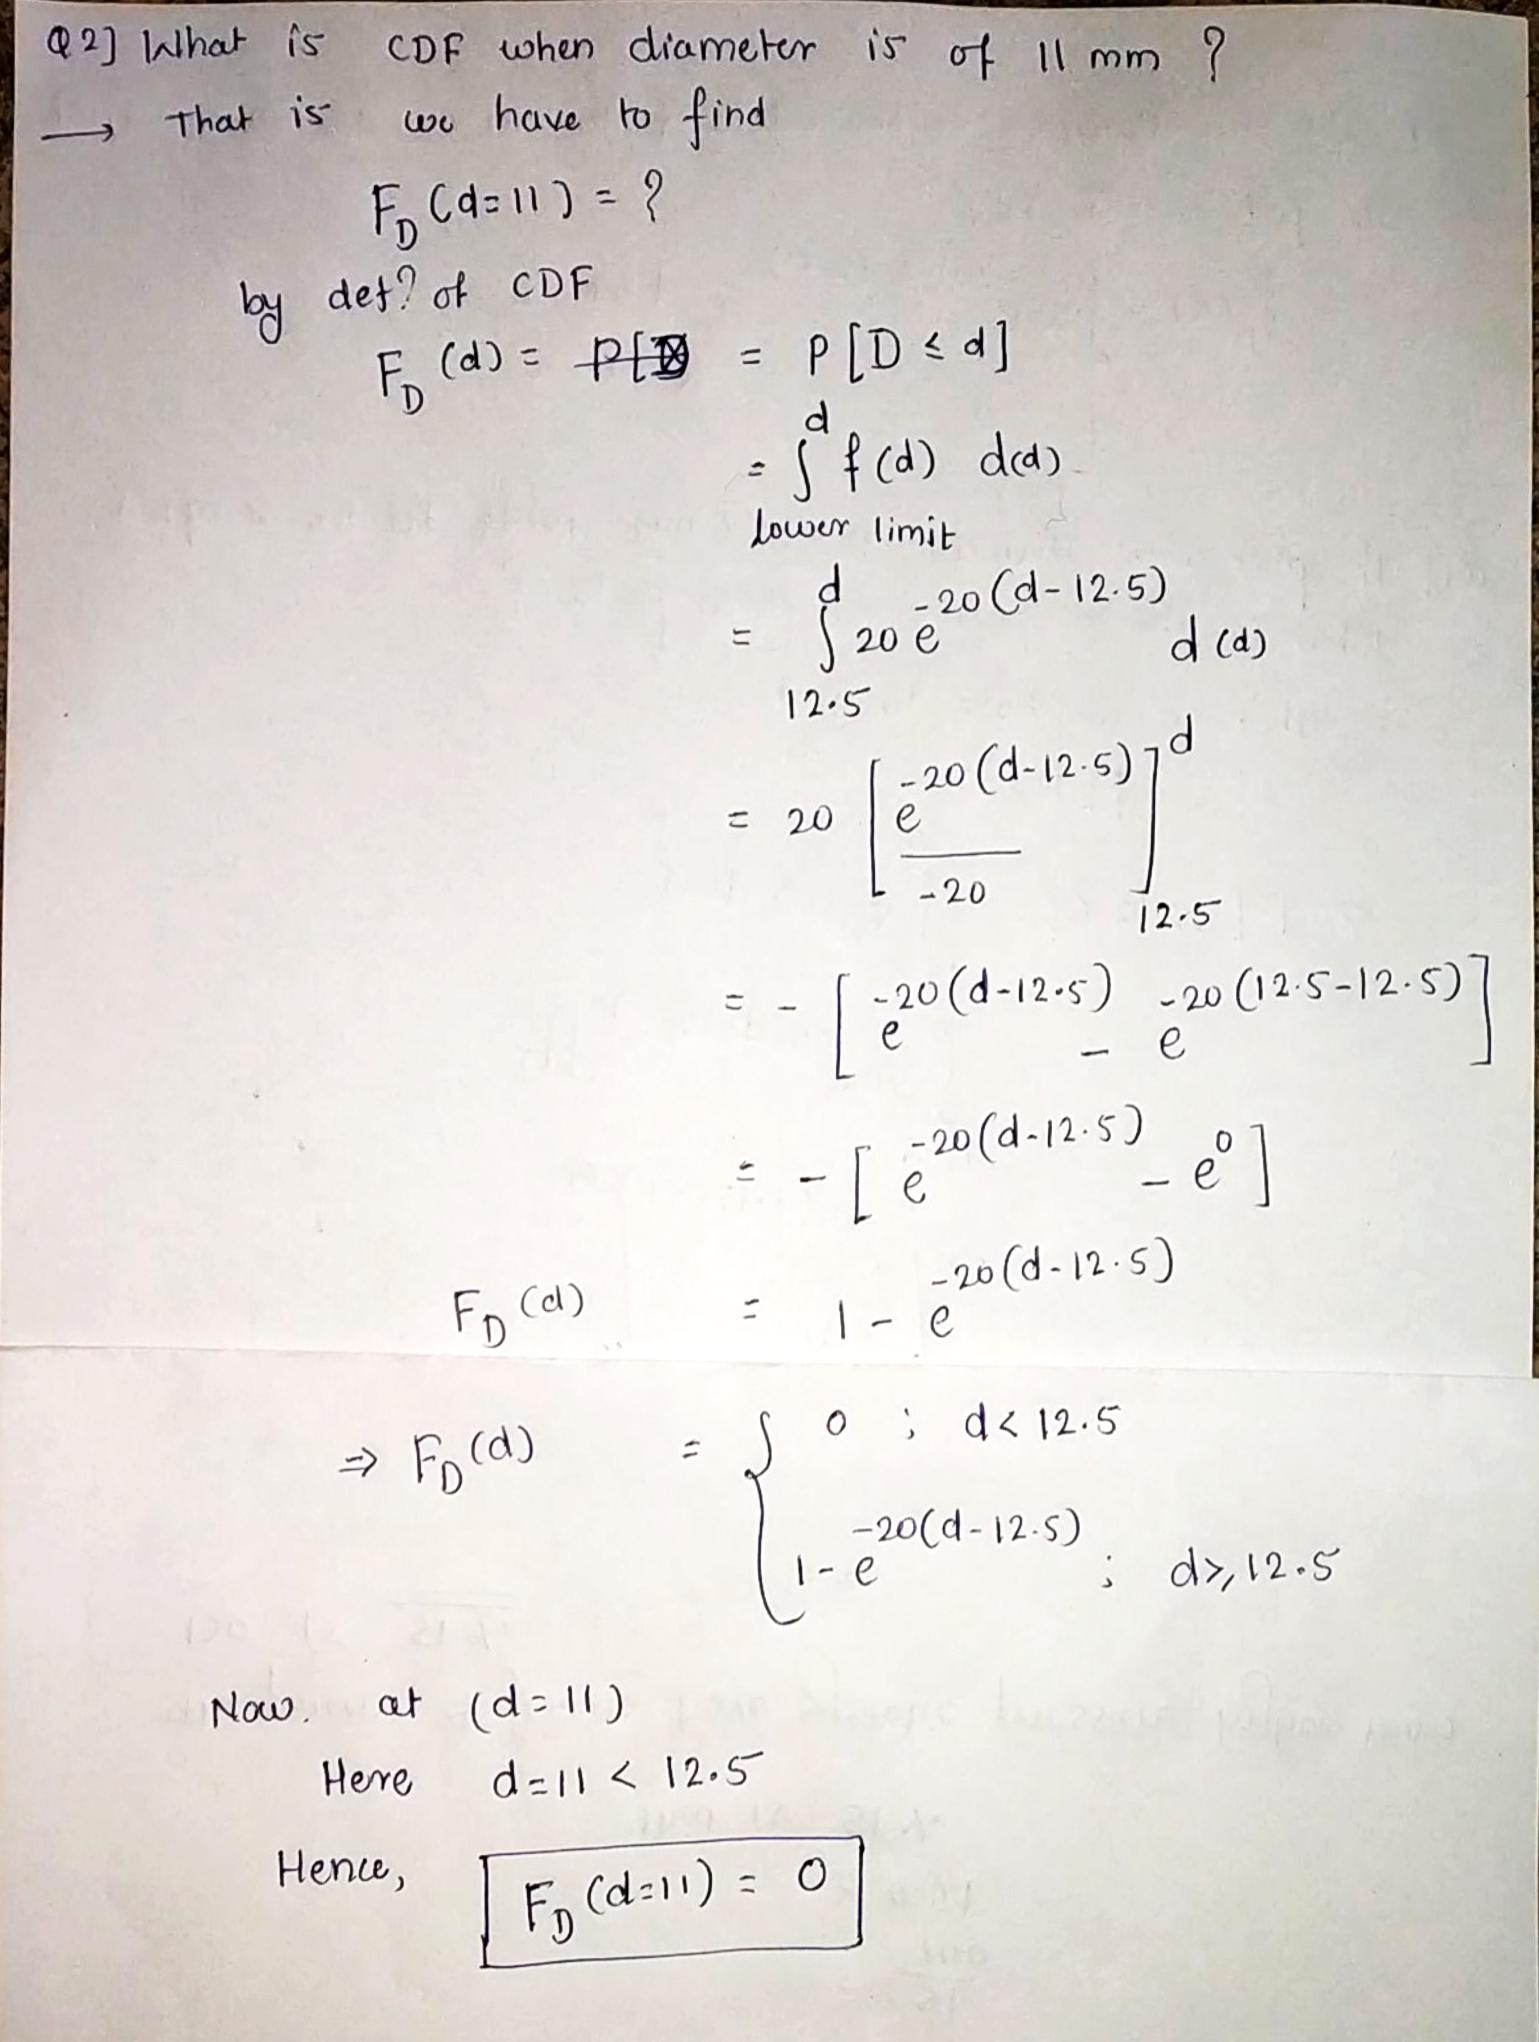 Q2] What is CDF when diameter is of 11 mm ?
→ That is we have to find
F_D (d=11) = ?
by def? of CDF
F_D (d) = = P[D ≤ d]
= ∫^d_lower limit f(d) d(d)
= ∫^d_12.5 20 e^-20(d-12.5) d(d)
= 20 [ e^-20(d-12.5) / -20 ]^d_12.5
= - [ e^-20(d-12.5) - e^-20(12.5-12.5) ]
= - [ e^-20(d-12.5) - e^0 ]
F_D (d) = 1 - e^-20(d-12.5)
⇒ F_D (d) = { 0 ; d < 12.5
1 - e^-20(d-12.5) ; d ≥ 12.5
Now. at (d=11)
Here d=11 < 12.5
Hence, F_D (d=11) = 0